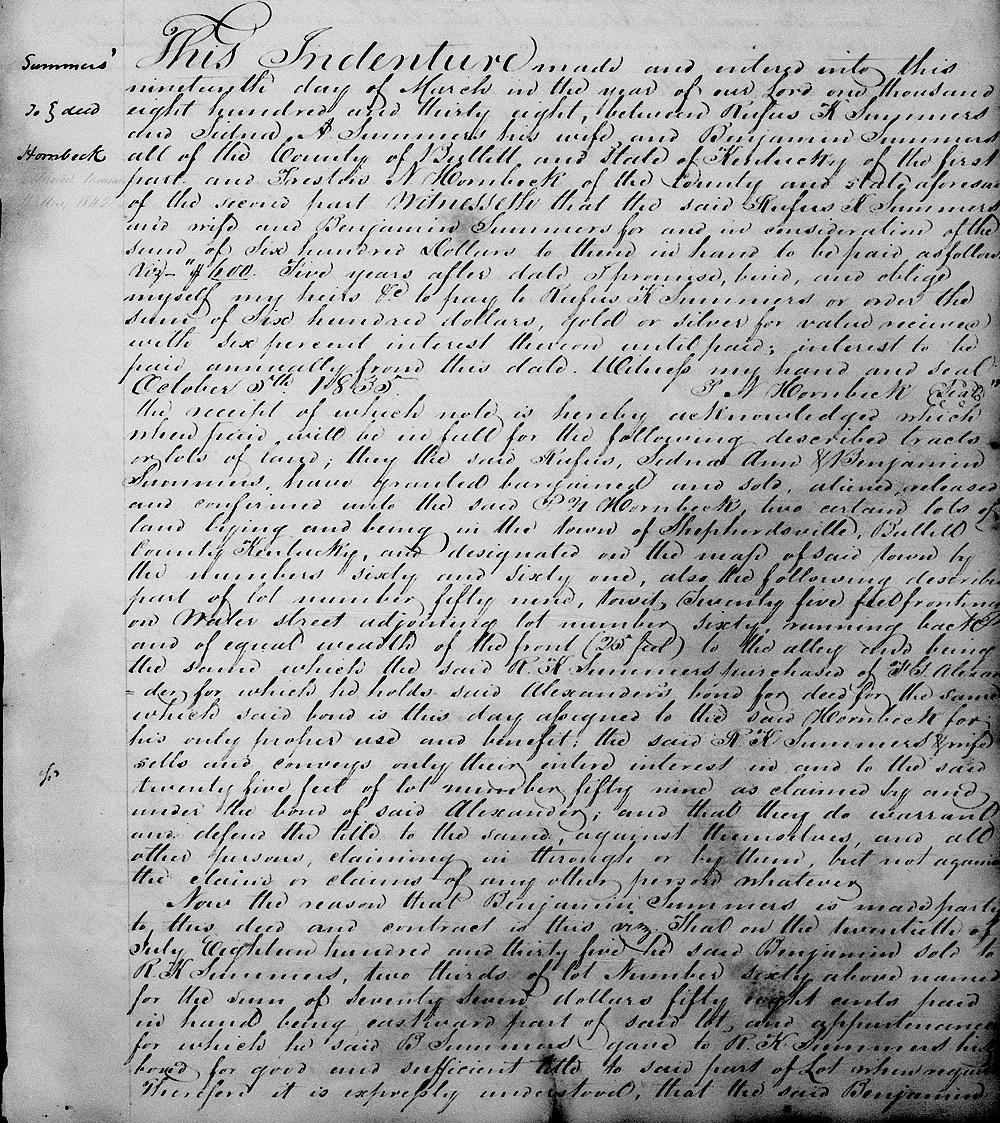 Summers'
To } deed
Hornbeck
This Indenture made and entered into this
nineteenth day of March in the year of our Lord one thousand
eight hundred and thirty eight, between Rufus K Summers
and Sedna A Summers his wife and Benjamin Summers
all of the County of Bullitt and State of Kentucky of the first
part and Preston N Hornbeck of the County and state aforesai
of the second part Witnesseth that the said Rufus K Summers
and wife and Benjamin Summers for and in consideration of the
sum of Six hundred Dollars to them in hand to be paid as follows
Viz— "$600. Five years after date I promise, bind, and oblige
myself my heirs &c to pay to Rufus K Summers or order the
sum of Six hundred dollars, gold or silver for value received
with six percent interest thereon until paid; interest to be
paid annually from this date. Witness my hand and seal
October 5th. 1835. P N Hornbeck Seal"
the receipt of which note is hereby acknowledged which
when paid will be in full for the following described tracts
or lots of land; they the said Rufus, Sedna Ann & Benjamin
Summers, have granted bargained and sold, aliened, released
and confirmed unto the said P N Hornbeck, two certain lots of
land lying and being in the town of Shepherdsville, Bullitt
County Kentucky, and designated on the map of said town by
the numbers sixty and sixty one, also the following describe
part of lot number fifty nine, towit, Twenty five feet fronting
on Water street adjoining lot number sixty running back
and of equal weadth of the front (25 feet) to the alley and being
the same which the said R. K Summers purchased of Alexan
-der for which he holds said Alexander's bond for deed for the same
which said bond is this day assigned to the said Hornbeck for
his only proper use and benefit; the said R K Summers & wife
sells and conveys only their entire interest in and to the said
twenty five feet of lot number fifty nine as claimed by and
under the bond of said Alexander; and that they do warrant
and defend the title to the same, against themselves, and all
other persons, claiming in through or by them, but not agains
the claim or claims of any other person whatever
Now the reason that Benjamin Summers is made party
to this deed and contract is this viz. That on the twentieth of
July Eighteen hundred and thirty five the said Benjamin sold to
R K Summers, two thirds of lot Number sixty above named
for the sum of seventy seven dollars fifty eight cents paid
in hand being eastward part of said lot, and appurtenance
for which he said B Summers gave to R. K Summers his
bond for good and sufficient title to said part of Lot when requir
Therefore it is expressly understood, that the said Benjamin